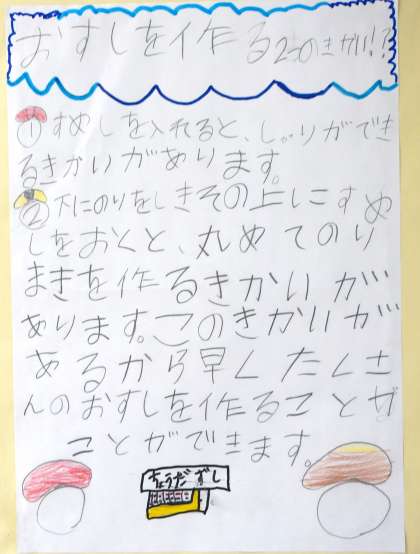 おすしを作る2つのきかい!?
①すめしを入れると、しゃりができ
るきかいがあります。
②下にのりをしきその上にすめ
しをおくと、丸めてのり
まきを作るきかいが
あります。このきかいが
あるから早くたくさ
んのおすしを作ることが
ことができます。
ちょうだずし